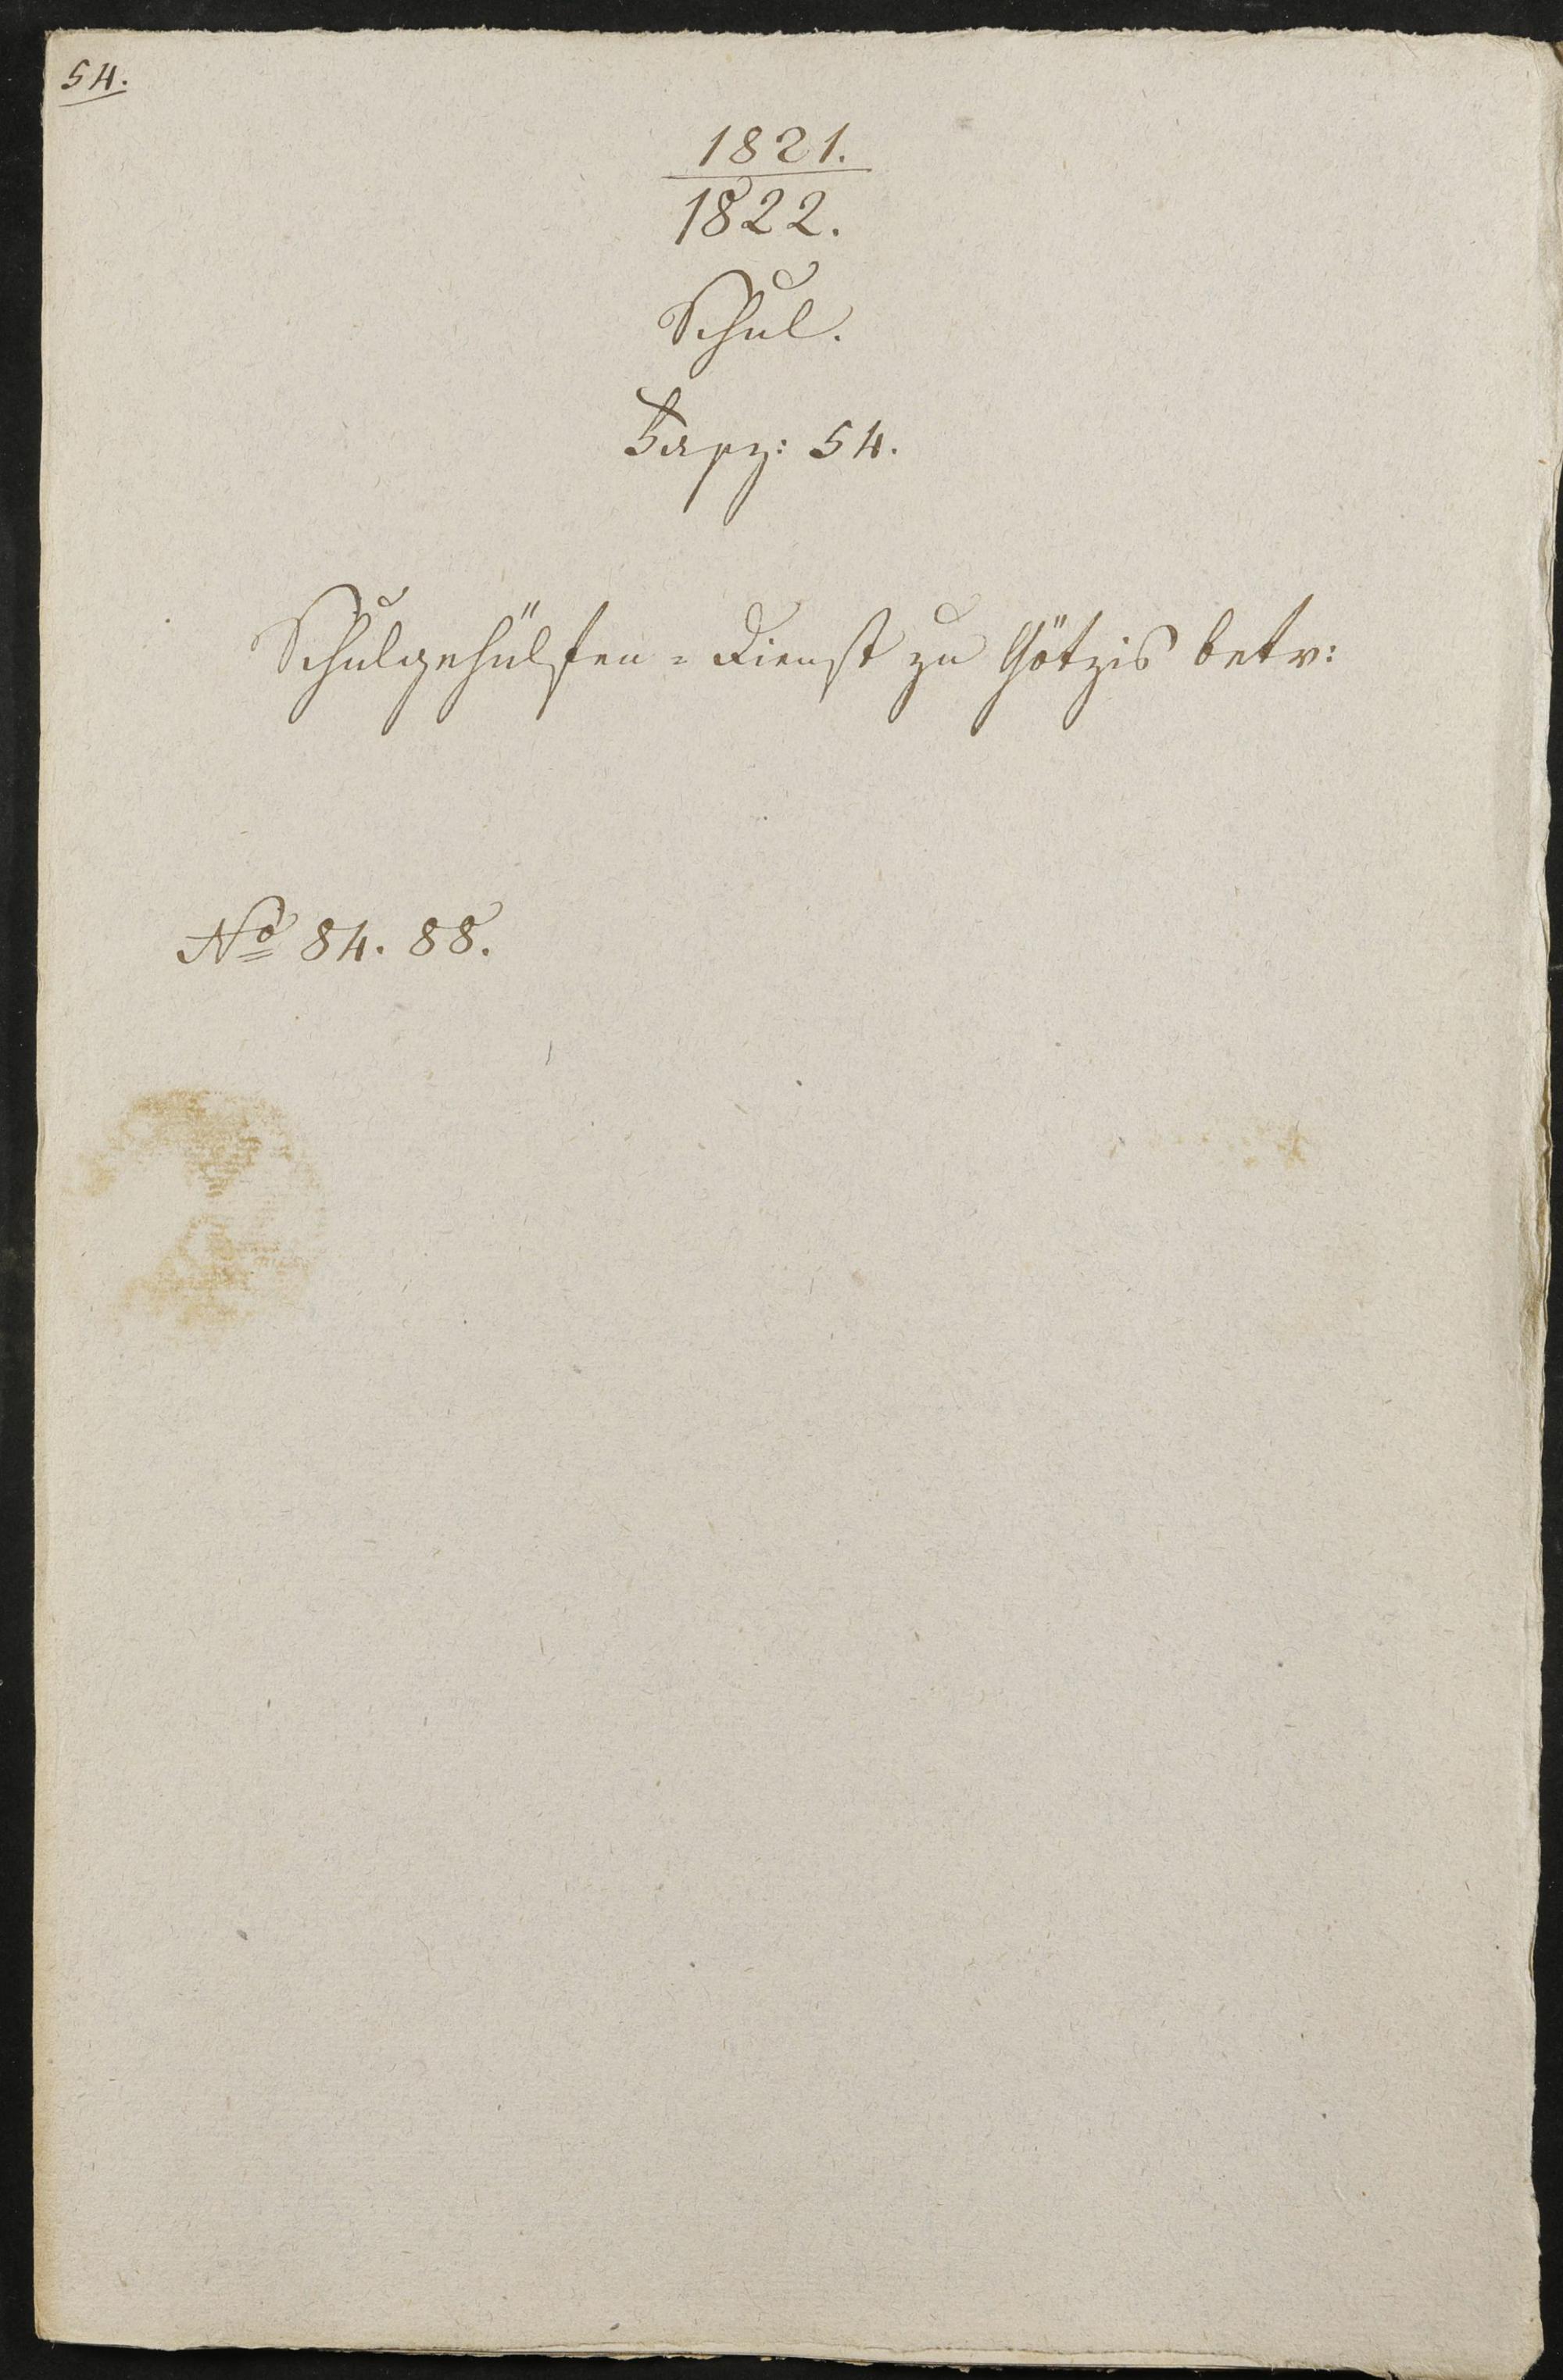 54.
1821.
1822.
Schul.
Fasz: 54.
Schulgehülfen=Dienst zu Götzis betr:
No 84. 88.